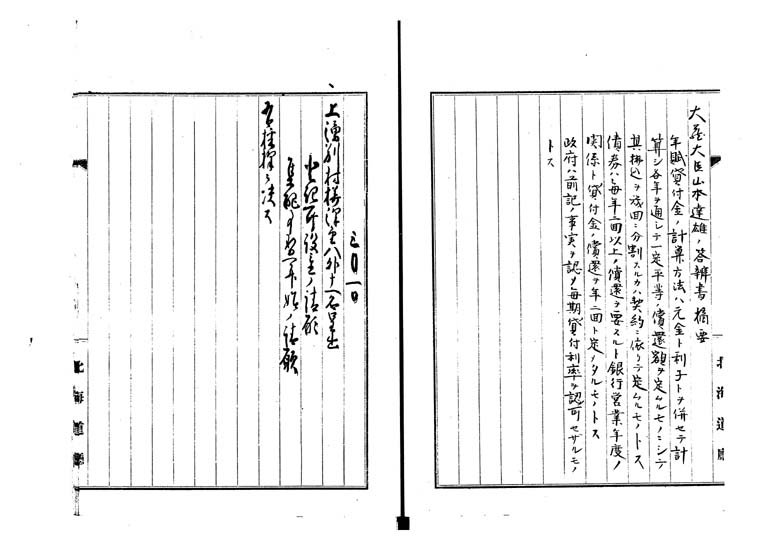 大蔵大臣山本達雄ノ答辨書摘要
年賦貸付金ノ計算方法ハ元金ト利子トヲ併セテ計
算シ各年ヲ通シテ一定平等ノ償還額ヲ定ムルモノニシテ
其拂込ヲ幾回ニ分割スルカハ契約ニ依リテ定ムルモノトス
債券ハ毎年二回以上ノ償還ヲ要スルト銀行営業年度ノ
関係ト貸付金ノ償還ヲ年二回ト定メタルモノトス
政府ハ前記ノ事実ヲ認メ毎期貸付利率ヲ認可セザルモノ
トス
北海道廳
上湧別村
外十一名呈出
登記所設立ノ請願
集配 開始ノ請願
右採択ニ決ス
北海道廳